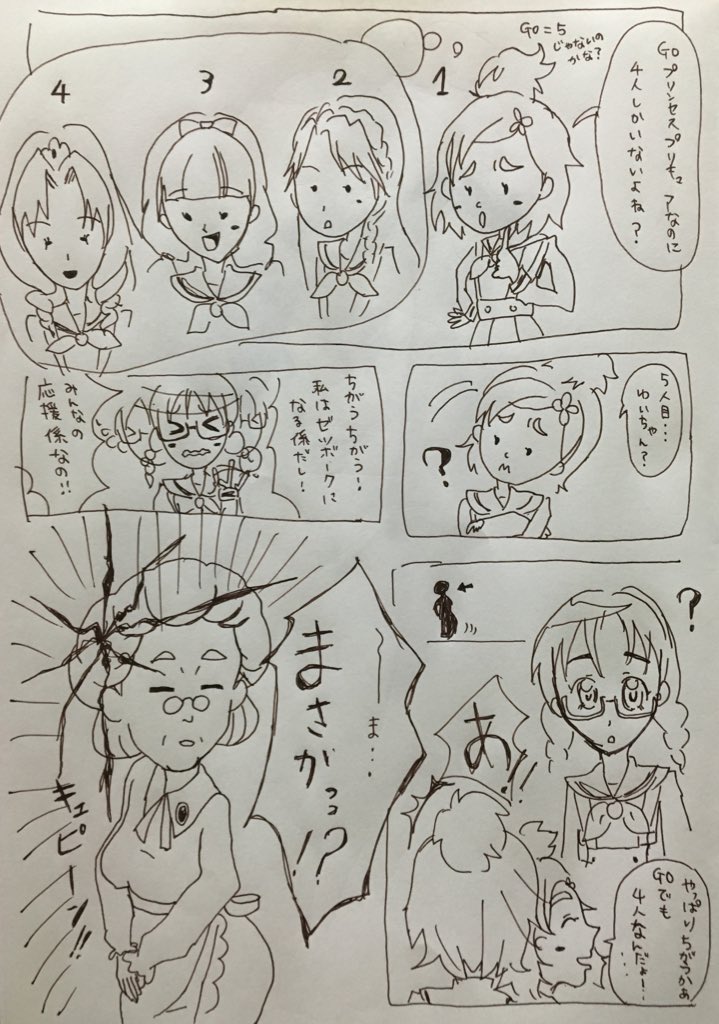 GOプリンセスプリキュアなのに
4人しかいないよね?
GO=5
じゃないの
かな?
1
2
3
4
5人目…
ゆいちゃん?
?
ちがうちがう!
私はゼツボーグに
なる係だし!
みんなの
応援係なの!!
?
あ!!
やっぱりちがうかぁ
GOでも
4人なんだよー…
…ま…
まさかっっ!?
キュピーン!!